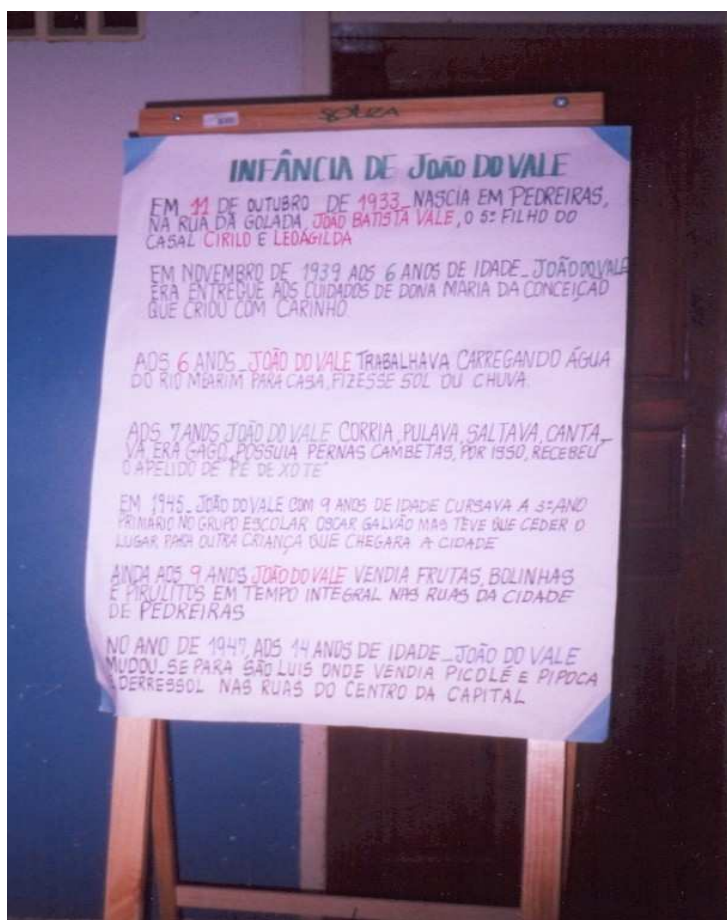 SOUZA
INFÂNCIA DE JOÃO DO VALE
EM 11 DE OUTUBRO DE 1933_ NASCIA EM PEDREIRAS,
NA RUA DA GOLADA, JOÃO BATISTA VALE, O 5º FILHO DO
CASAL CIRILO E LEOAGILDA
EM NOVEMBRO DE 1939 AOS 6 ANOS DE IDADE_ JOÃO DO VALE
ERA ENTREGUE AOS CUIDADOS DE DONA MARIA DA CONCEIÇÃO
QUE CRIOU COM CARINHO.
AOS 6 ANOS_ JOÃO DO VALE TRABALHAVA CARREGANDO ÁGUA
DO RIO MEARIM PARA CASA, FIZESSE SOL OU CHUVA.
AOS 7 ANOS JOÃO DO VALE CORRIA, PULAVA, SALTAVA, CANTA_
VA, ERA GAGO, POSSUIA PERNAS CAMBETAS, POR ISSO, RECEBEU
O APELIDO DE "PÉ DE XOTE"
EM 1945_ JOÃO DO VALE COM 9 ANOS DE IDADE CURSAVA A 3º ANO
PRIMÁRIO NO GRUPO ESCOLAR OSCAR GALVÃO MAS TEVE QUE CEDER O
LUGAR PARA OUTRA CRIANÇA QUE CHEGARA A CIDADE
AINDA AOS 9 ANOS JOÃO DO VALE VENDIA FRUTAS, BOLINHAS
E PIRULITOS EM TEMPO INTEGRAL NAS RUAS DA CIDADE
DE PEDREIRAS
NO ANO DE 1947, AOS 14 ANOS DE IDADE_ JOÃO DO VALE
MUDOU-SE PARA SÃO LUIS ONDE VENDIA PICOLÉ E PIPOCA
DERRESSOL NAS RUAS DO CENTRO DA CAPITAL